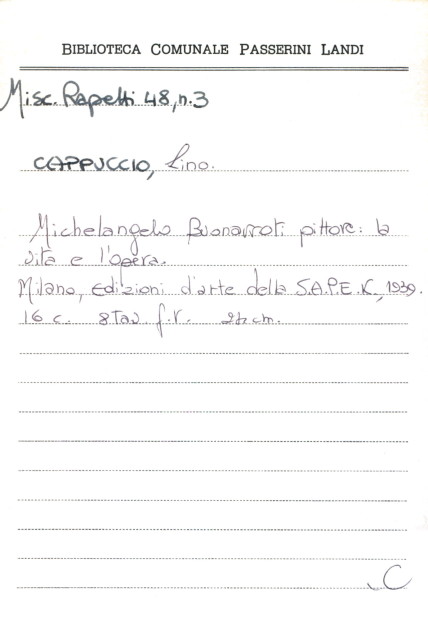 BIBLIOTECA COMUNALE PASSERINI LANDI
Misc. Rapetti 48, n. 3
CAPPUCCIO, Lino.
Michelangelo Buonarroti pittore: la
vita e l'opera.
Milano, Edizioni d'arte della S.A.P.E.K., 1939.
16 c. 8 Tav. f.t. cm.
C